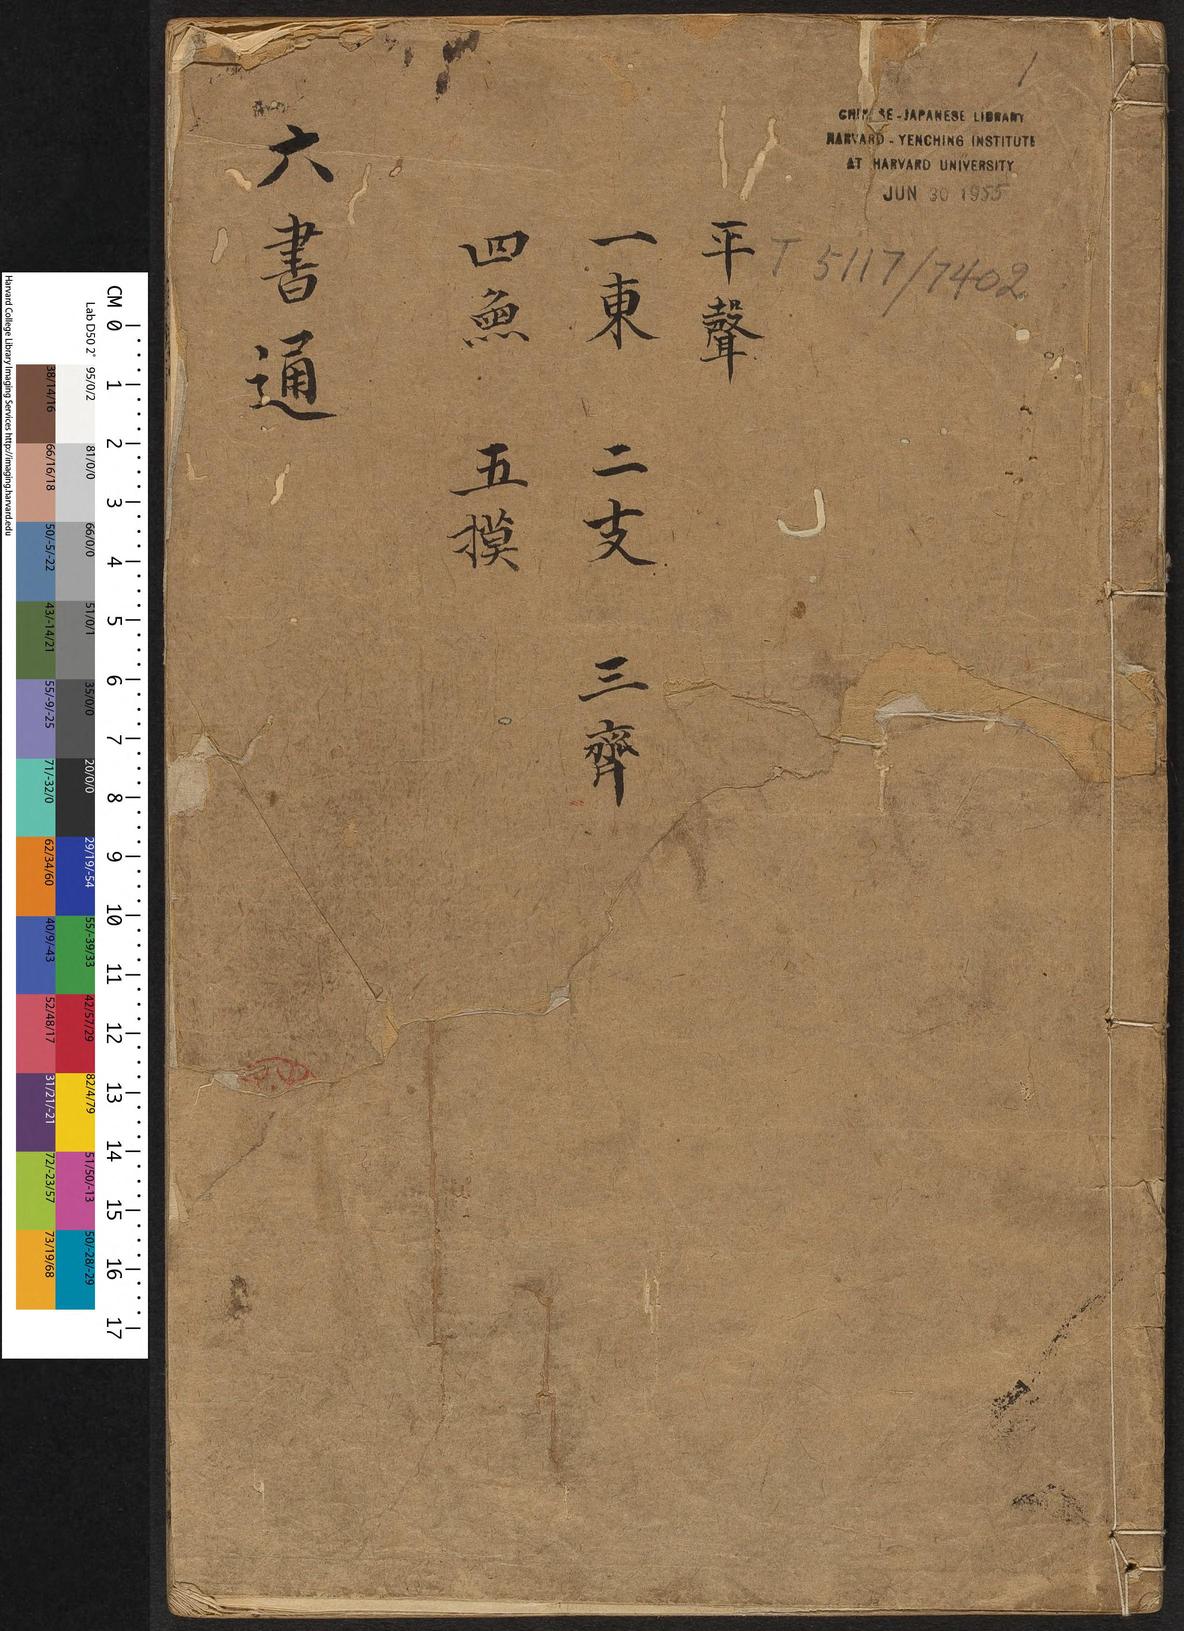 1
CHINESE-JAPANESE LIBRARY
HARVARD-YENCHING INSTITUTE
AT HARVARD UNIVERSITY
JUN 30 1955
T 5117/7402
平聲
一東 二支 三齊
四魚 五摸
六書通
CM 0 1 2 3 4 5 6 7 8 9 10 11 12 13 14 15 16 17
Lab D50 2° 95/0/2 81/0/0 66/0/0 51/0/1 35/0/0 20/0/0 29/19/-54 55/-39/33 42/57/29 82/4/79 51/50/-13 50/-28/-29
38/14/16 66/16/18 50/-5/-22 43/-14/21 55/-9/-25 71/-32/0 62/34/60 40/9/-43 52/48/17 31/21/-21 72/-23/57 73/19/68
Harvard College Library Imaging Services http://imaging.harvard.edu